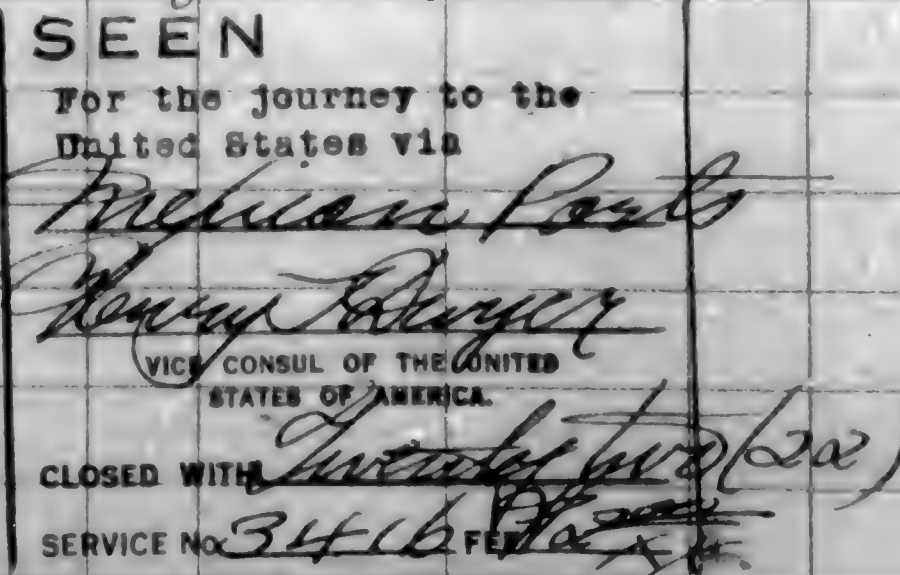 SEEN
For the journey to the
United States via
Mexican Ports
Henry Dwyer
VICE CONSUL OF THE UNITED
STATES OF AMERICA.
CLOSED WITH Twenty two (22)
SERVICE No 3416 FEE